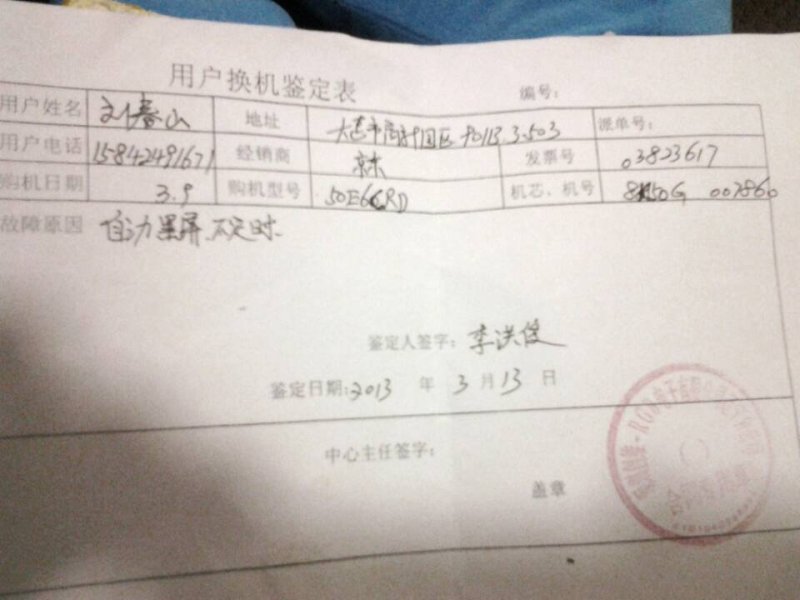 用户换机鉴定表
编号:
用户姓名 刘春山 地址 派单号:
用户电话 15842491671 经销商 京东 发票号 03823617
购机日期 3.9 购机型号 50E6CRD 机芯、机号 007860
故障原因 自动黑屏.不定时.
鉴定人签字: 李洪俊
鉴定日期:2013 年 3 月 13 日
中心主任签字:
盖章